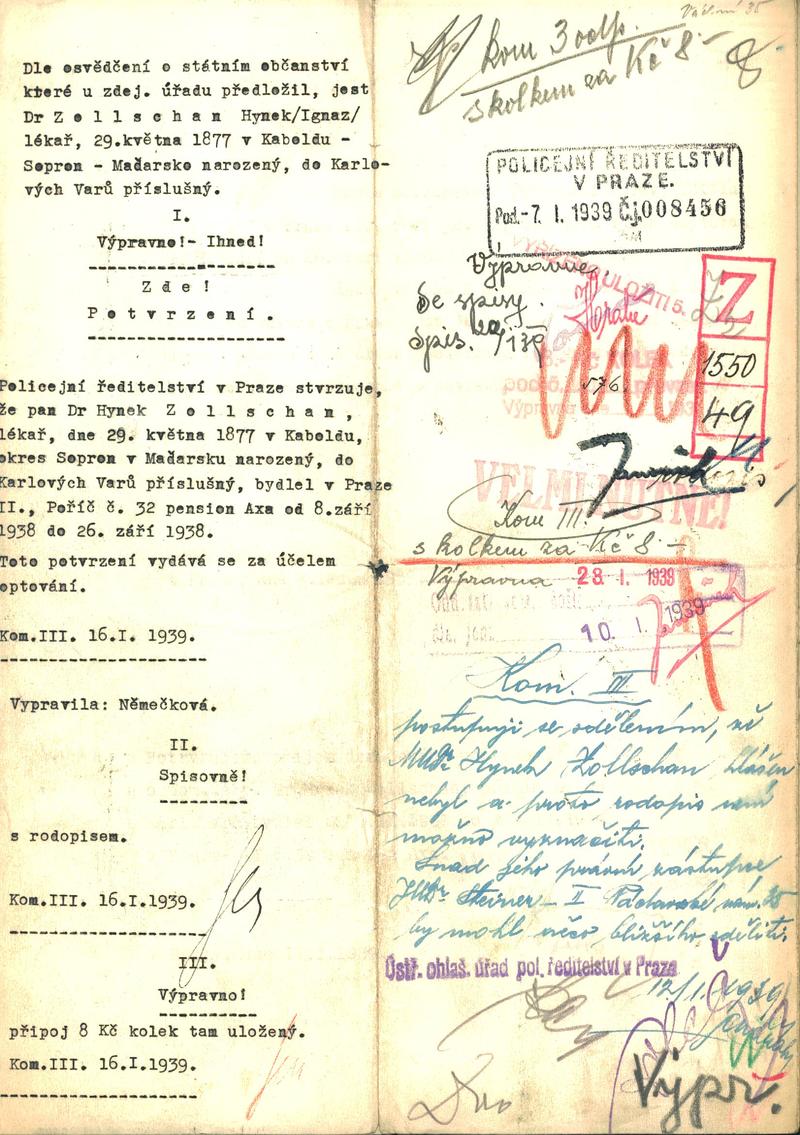 Dle osvědčení o státním občanství
které u zdej. úřadu předložil, jest
Dr Z o l l s c h a n Hynek/Ignaz/
lékař, 29.května 1877 v Kaboldu -
Sopron - Maďarsko narozený, do Karlo-
vých Varů příslušný.
I.
Výpravno!- Ihned!
Z d e !
P o t v r z e n í .
Policejní ředitelství v Praze stvrzuje,
že pan Dr Hynek Z o l l s c h a n ,
lékař, dne 29. května 1877 v Kaboldu,
okres Sopron v Maďarsku narozený, do
Karlových Varů příslušný, bydlel v Praze
II., Poříč č. 32 pension Axa od 8.září
1938 do 26. září 1938.
Toto potvrzení vydává se za účelem
optování.
Kom.III. 16.I. 1939.
Vypravila: Němečková.
II.
Spisovně!
s rodopisem.
Kom.III. 16.I.1939.
III.
Výpravno!
připoj 8 Kč kolek tam uložený.
Kom.III. 16.I.1939.
kom 3 odp.
s kolkem za Kč 8.-
POLICEJNÍ ŘEDITELSTVÍ
V PRAZE.
Pod.-7. I. 1939 Čj.008456
Výpravne.
se spisy.
spis.
Z
1550
49
VELMI NUTNÉ!
Kom III.
s kolkem za Kč 8-
Výpravna 28. I. 1939
10. I. 1939
Kom. III
postupuji se sdělením, že
MUDr Hynek Zollschan hlášen
nebyl a proto rodopis není
možno vyznačiti.
Snad jeho právní zástupce
JUDr Steiner - II
by mohl něco bližšího sděliti.
Ústř. ohlaš. úřad pol. ředitelství v Praze
12/1. 1939
Výpr.